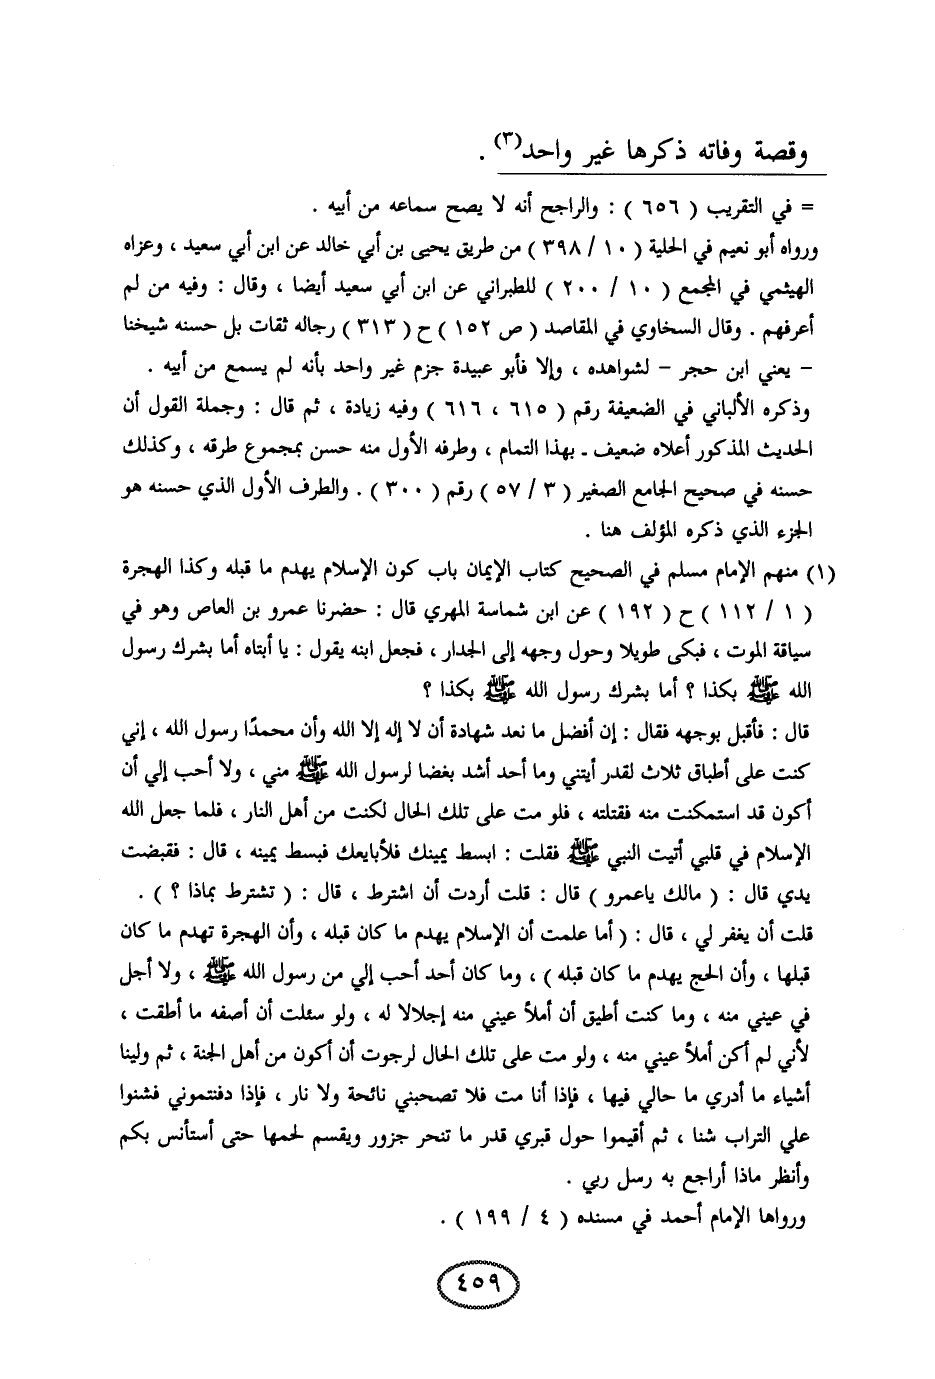 وقصة وفاته ذكرها غير واحد(٣) .
= في التقريب ( ٦٥٦ ) : والراجح أنه لا يصح سماعه من أبيه .
ورواه أبو نعيم في الحلية ( ١٠ / ٣٩٨ ) من طريق يحيى بن أبي خالد عن ابن أبي سعيد ، وعزاه
الهيثمي في المجمع ( ١٠ / ٢٠٠ ) للطبراني عن ابن أبي سعيد أيضا ، وقال : وفيه من لم
أعرفهم . وقال السخاوي في المقاصد ( ص ١٥٢ ) ح ( ٣١٣ ) رجاله ثقات بل حسنه شيخنا
– يعني ابن حجر – لشواهده ، وإلا فأبو عبيدة جزم غير واحد بأنه لم يسمع من أبيه .
وذكره الألباني في الضعيفة رقم ( ٦١٥ ، ٦١٦ ) وفيه زيادة ، ثم قال : وجملة القول أن
الحديث المذكور أعلاه ضعيف ـ بهذا التمام ، وطرفه الأول منه حسن بمجموع طرقه ، وكذلك
حسنه في صحيح الجامع الصغير ( ٣ / ٥٧ ) رقم ( ٣٠٠ ) . والطرف الأول الذي حسنه هو
الجزء الذي ذكره المؤلف هنا .
(١) منهم الإمام مسلم في الصحيح كتاب الإيمان باب كون الإسلام يهدم ما قبله وكذا الهجرة
( ١ / ١١٢ ) ح ( ١٩٢ ) عن ابن شماسة المهري قال : حضرنا عمرو بن العاص وهو في
سياقة الموت ، فبكى طويلا وحول وجهه إلى الجدار ، فجعل ابنه يقول : يا أبتاه أما بشرك رسول
الله ﷺ بكذا ؟ أما بشرك رسول الله ﷺ بكذا ؟
قال : فأقبل بوجهه فقال : إن أفضل ما نعد شهادة أن لا إله إلا الله وأن محمدًا رسول الله ، إني
كنت على أطباق ثلاث لقدر أيتني وما أحد أشد بغضا لرسول الله ﷺ مني ، ولا أحب إلي أن
أكون قد استمكنت منه فقتلته ، فلو مت على تلك الحال لكنت من أهل النار ، فلما جعل الله
الإسلام في قلبي أتيت النبي ﷺ فقلت : ابسط يمينك فلأبايعك فبسط يمينه ، قال : فقبضت
يدي قال : ( مالك ياعمرو ) قال : قلت أردت أن اشترط ، قال : ( تشترط بماذا ؟ ) .
قلت أن يغفر لي ، قال : ( أما علمت أن الإسلام يهدم ما كان قبله ، وأن الهجرة تهدم ما كان
قبلها ، وأن الحج يهدم ما كان قبله ) ، وما كان أحد أحب إلي من رسول الله ﷺ ، ولا أجل
في عيني منه ، وما كنت أطيق أن أملأ عيني منه إجلالا له ، ولو سئلت أن أصفه ما أطقت ،
لأني لم أكن أملأ عيني منه ، ولو مت على تلك الحال لرجوت أن أكون من أهل الجنة ، ثم ولينا
أشياء ما أدري ما حالي فيها ، فإذا أنا مت فلا تصحبني نائحة ولا نار ، فإذا دفنتموني فشنوا
علي التراب شنا ، ثم أقيموا حول قبري قدر ما تنحر جزور ويقسم لحمها حتى أستأنس بكم
وأنظر ماذا أراجع به رسل ربي .
ورواها الإمام أحمد في مسنده ( ٤ / ١٩٩ ) .
٤٥٩